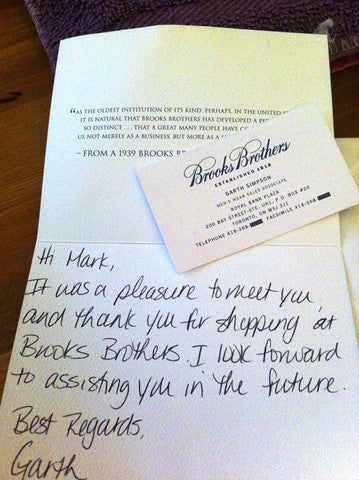 “AS THE OLDEST INSTITUTION OF ITS KIND, PERHAPS, IN THE UNITED
IT IS NATURAL THAT BROOKS BROTHERS HAS DEVELOPED A
SO DISTINCT . . . THAT A GREAT MANY PEOPLE HAVE
US NOT MERELY AS A BUSINESS, BUT MORE AS A
~ FROM A 1939 BROOKS
Brooks Brothers
ESTABLISHED 1818
GARTH SIMPSON
MEN'S WEAR SALES ASSOCIATE
ROYAL BANK PLAZA
200 BAY STREET-STE. UR1, P.O. BOX #20
TORONTO, ON M5J 2J1
TELEPHONE 416-368- FACSIMILE 416-368-
Hi Mark,
It was a pleasure to meet you
and thank you for shopping at
Brooks Brothers. I look forward
to assisting you in the future.
Best Regards,
Garth